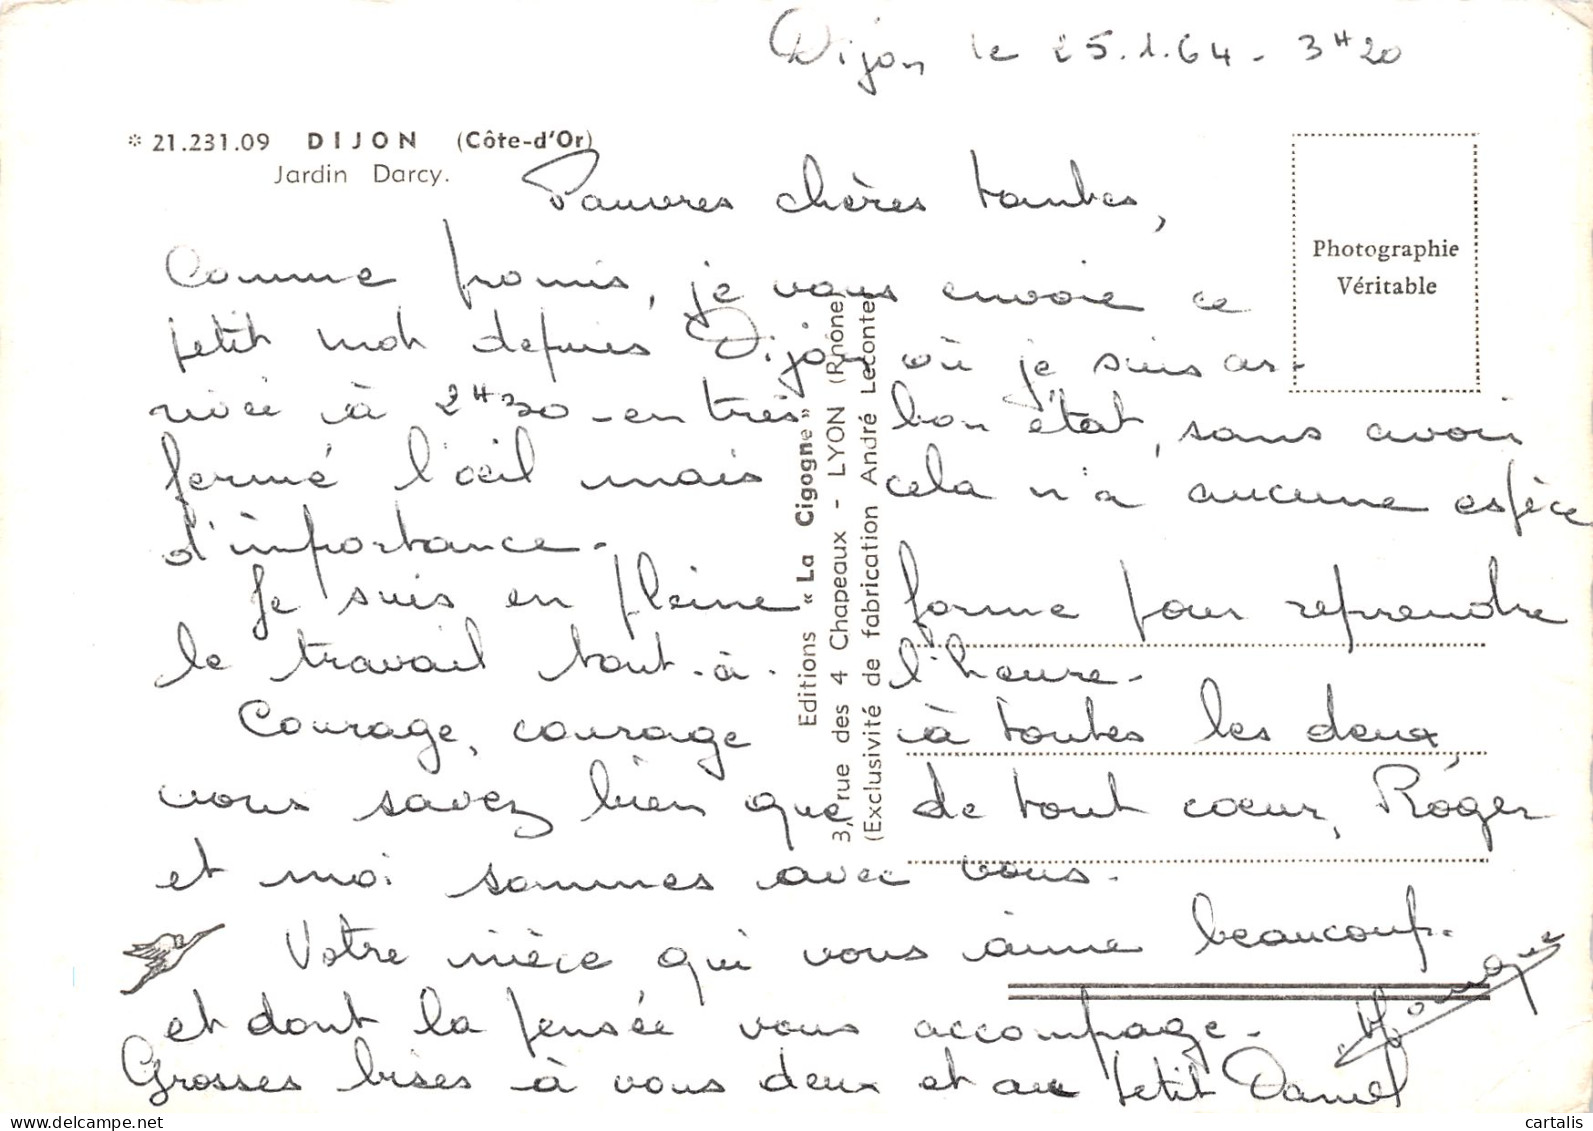 Dijon le 25.1.64 - 3H20
* 21.231.09 DIJON (Côte-d'Or)
Jardin Darcy.
Photographie
Véritable
Pauvres chères tantes,
Comme promis, je vous envoie ce
petit mot depuis Dijon où je suis ar-
rivée à 2H30 - en très bon état, sans avoir
fermé l'œil mais cela n'a aucune espèce
d'importance.
Je suis en pleine forme pour reprendre
le travail tout-à-l'heure.
Courage, courage à toutes les deux,
vous savez bien que de tout cœur, Roger
et moi sommes avec vous.
Votre nièce qui vous aime beaucoup.
et dont la pensée vous accompagne.
Monique
Grosses bises à vous deux et au petit Daniel
Editions « La Cigogne »
3, rue des 4 Chapeaux - LYON (Rhône)
(Exclusivité de fabrication André Leconte)
cartalis | cartalis.com